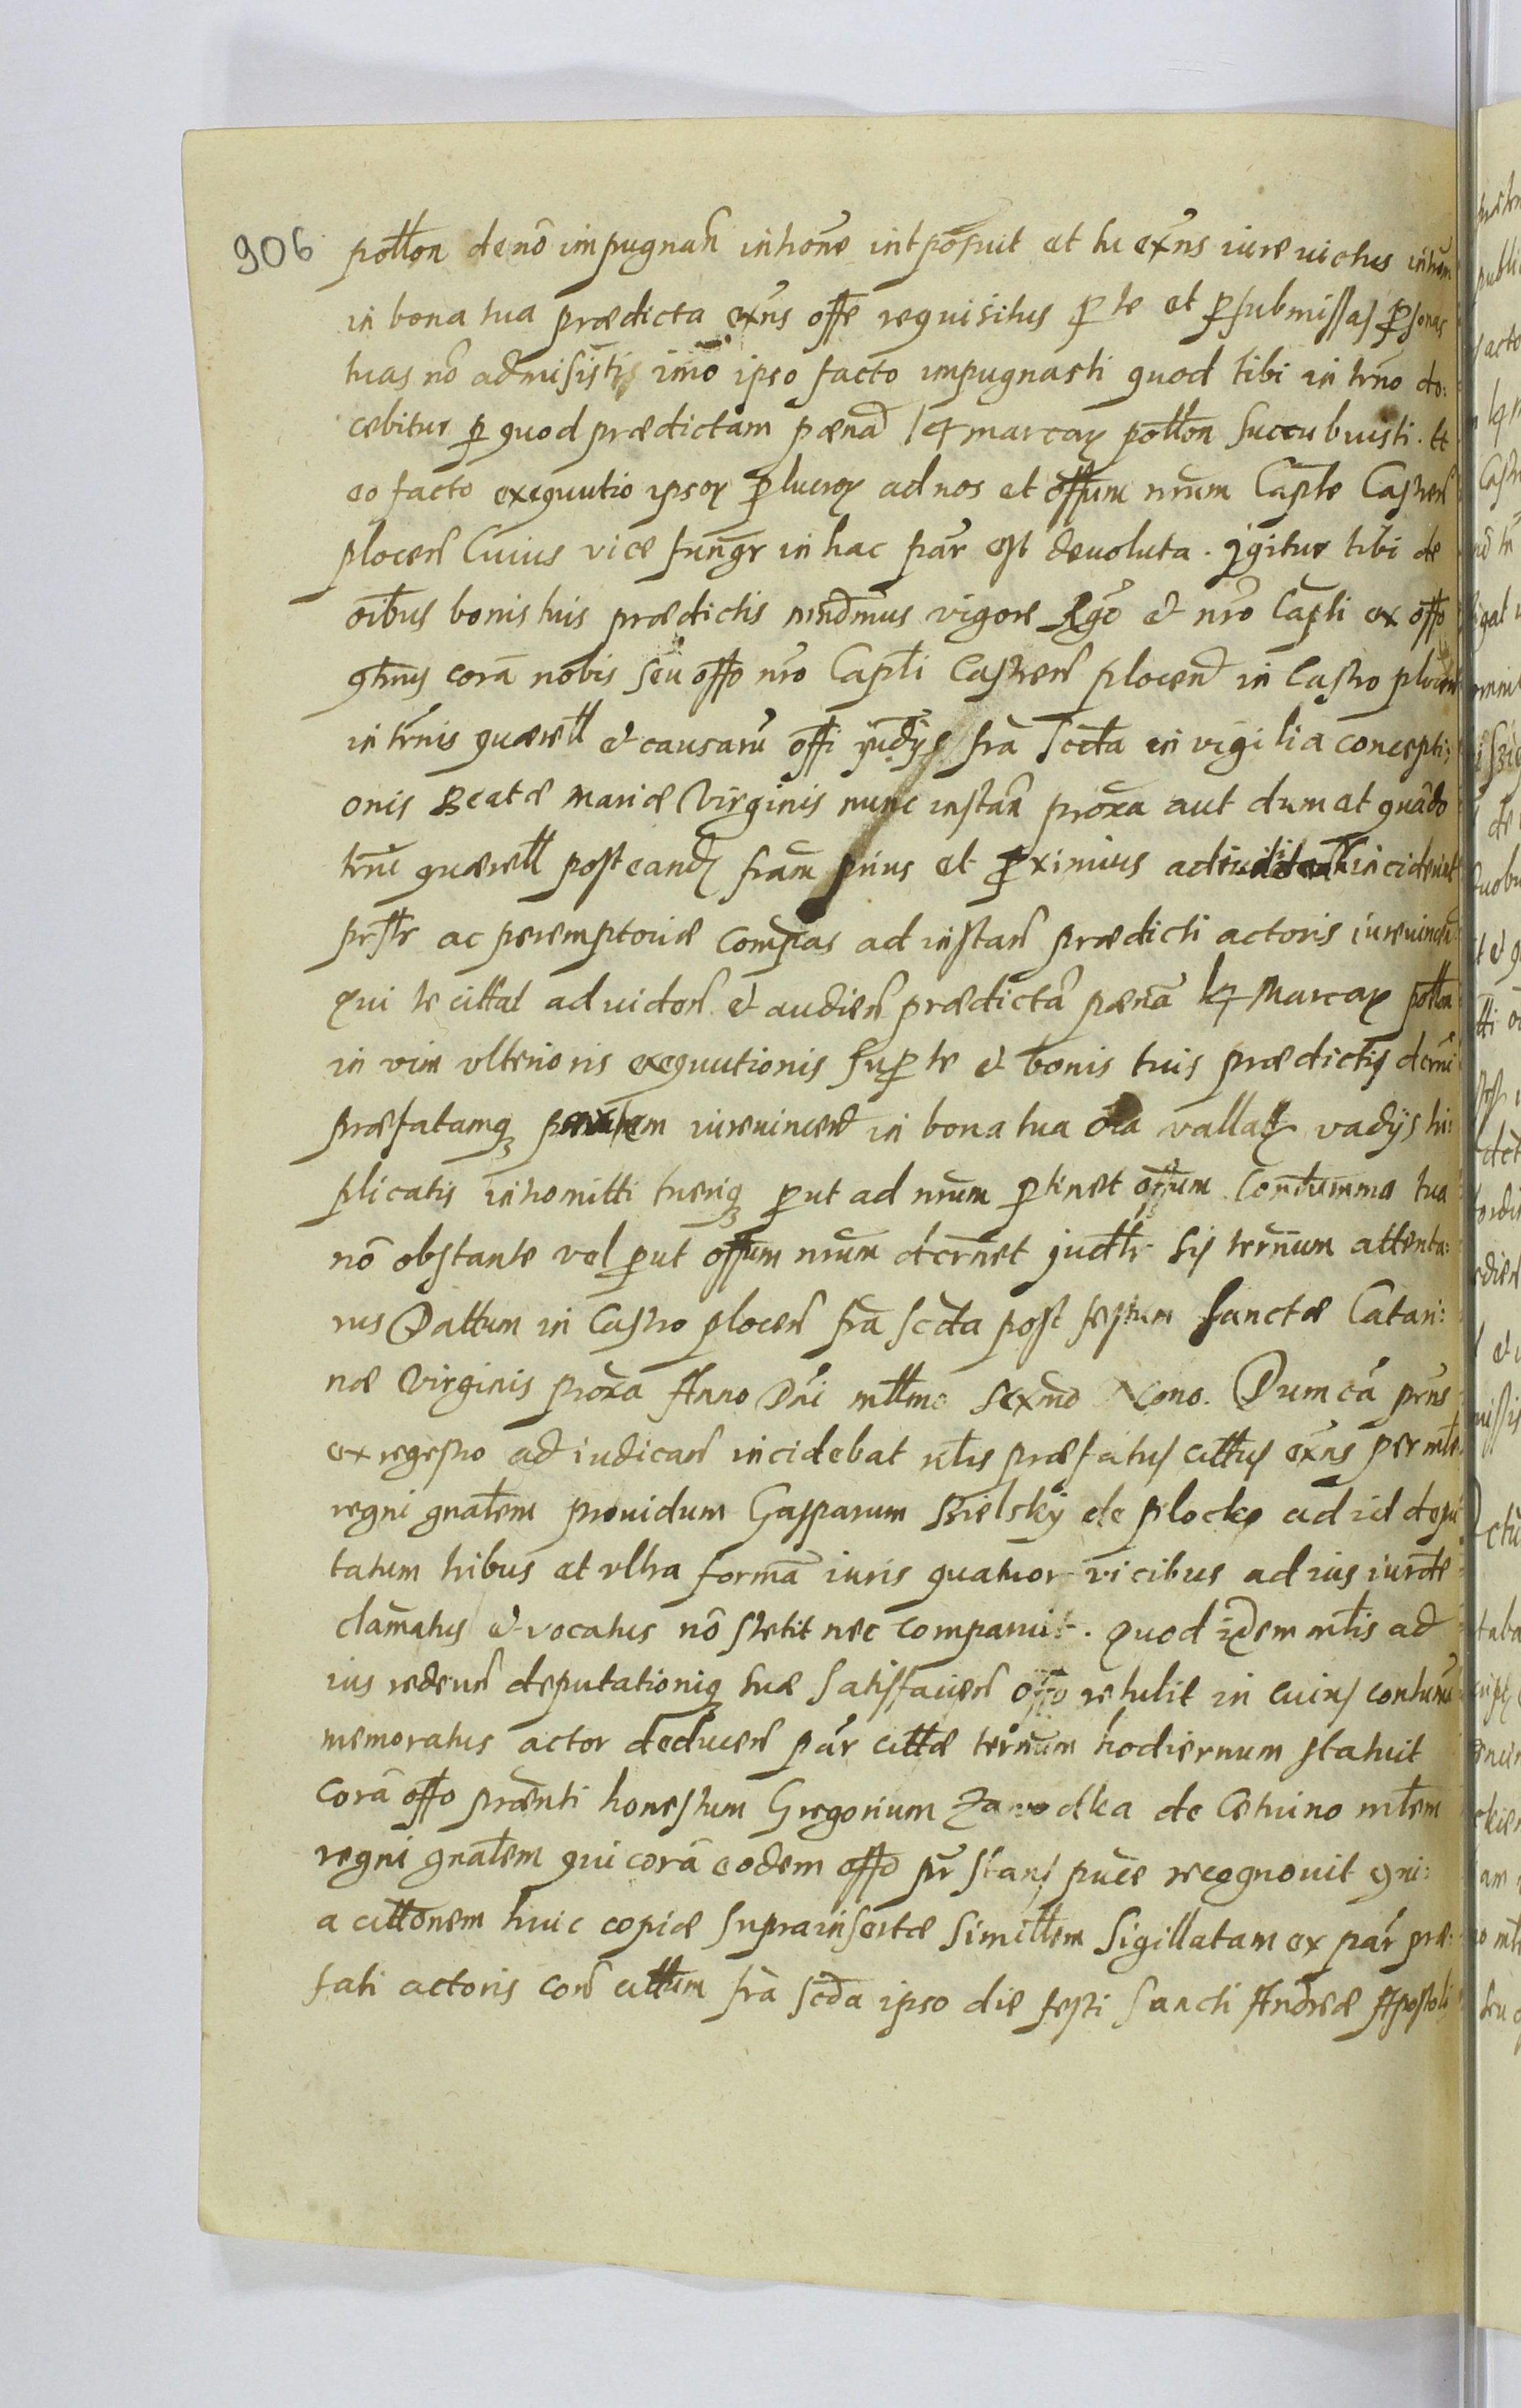 906
potton de nõ impugnań intrōne intposuit et tu exñs iure victus intrōm
in bona tua prædicta exñs offē requisitus p te et p submissas psonas
tuas nō admisistis imō ipso facto impugnasti quod tibi in trño do:
cebitur p quod prædictam pænam 14 marcax pottōn succubuisti. Et
eo facto exequutio ipsox p lucrox ad nos et offum nrum Caple Castreń
plocen̄ Cuius vice fungr in hac par est devoluta. Igitur tibi de
oībus bonis tuis prædictis mn̄dmus vigore Rgō et nrō Capli ex offo
qtnus corā nobis seu offo nrō Capli Castreń plocen̄ in Castro plocen̄
in trnis quærell et causarū offi fra scda in vigilia concepti:
onis Beatæ Mariæ Virginis nunc instań proxa aut dum et quādo
trni quærell post eand fram prius et pximius adiudicań inciderit
prstr ac peremptoriæ compeas ad instań prædicti actoris iurevincen̄
Qui te cittat ad viden̄ et audien̄ prædictā pænā 14 Marcax pottōn
in vim ulterioris exequutionis sup te et bonis tuis prædictis dcrni
præfatamq iurevincen̄ in bona tua oīa vallatq vadijs tri:
plicatis intromitti tueriq put ad nrum ptinet offum. Contumma tua
nō obstante vel put offum nrum dcrnet judtr sis ternum attenta:
rus Dattum in Castro plocen̄ fra scda post festum Sanctæ Catari:
næ Virginis proxa Anno Dñi mttmo sexmo Nono. Dum cā prns
ex regestro ad iudicań incidebat mtis præfatus cittus exns per mtē
regni gnalem providum Gasparum Bielsky de plocko ad id depu
tatum tribus et ultra formā iuris quatuor vicibus ad ius iurdte
clamatus et vocatus nō stetit nec comparuit. Quod idem mtis ad
ius redeun̄ deputationiq suæ satisfacien̄ offo retulit in cuius contum
memoratus actor deducen̄ par cittæ ternum hodiernum statuit
Corā offo prænti honestum Gregorium Zawodka de Cetuino mtem
regni gnalem qui corā eodem offo pr stans puce recognouit qni:
a cittonem huic copiæ suprainsertæ similem Sigillatam ex par præ:
fati actoris con cittum fra scda ipso die festi Sancti Andreæ Apostoli